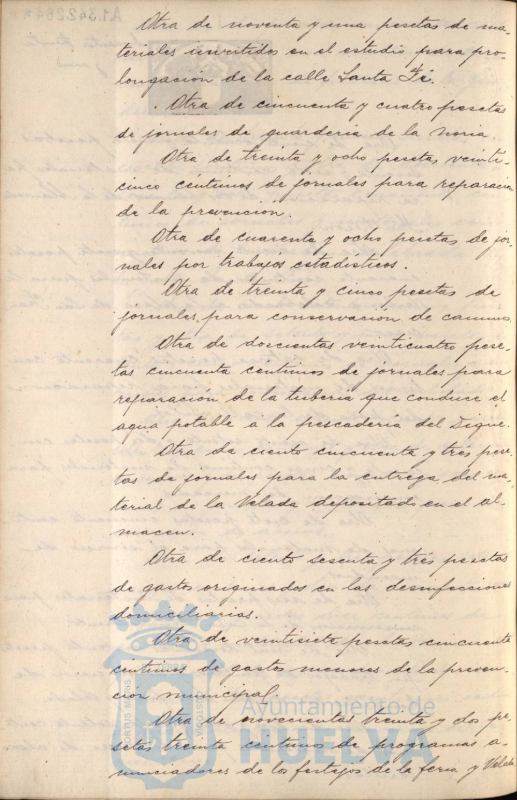 Otra de noventa y una pesetas de ma-
teriales invertidos en el estudio para pro-
longación de la calle Santa Fé.
Otra de cincuenta y cuatro pesetas
de jornales de guardería de la noria.
Otra de treinta y ocho pesetas veinti-
cinco céntimos de jornales para reparación
de la prevención.
Otra de cuarenta y ocho pesetas de jor-
nales por trabajos estadísticos.
Otra de treinta y cinco pesetas de
jornales para conservación de caminos
Otra de doscientas veinticuatro pese-
tas cincuenta céntimos de jornales para
reparación de la tubería que conduce el
agua potable á la pescadería del Dique.
Otra de ciento cincuenta y tres pese-
tas de jornales para la entrega del ma-
terial de la Velada depositado en el al-
macen.
Otra de ciento sesenta y tres pesetas
de gastos originados en las desinfecciones
domiciliarias.
Otra de veintisiete pesetas cincuenta
céntimos de gastos menores de la preven-
ción municipal.
Otra de novecientas treinta y dos pe-
setas treinta centimos de programas a-
nunciadores de los festejos de la feria y Velada
Ayuntamiento de
HUELVA